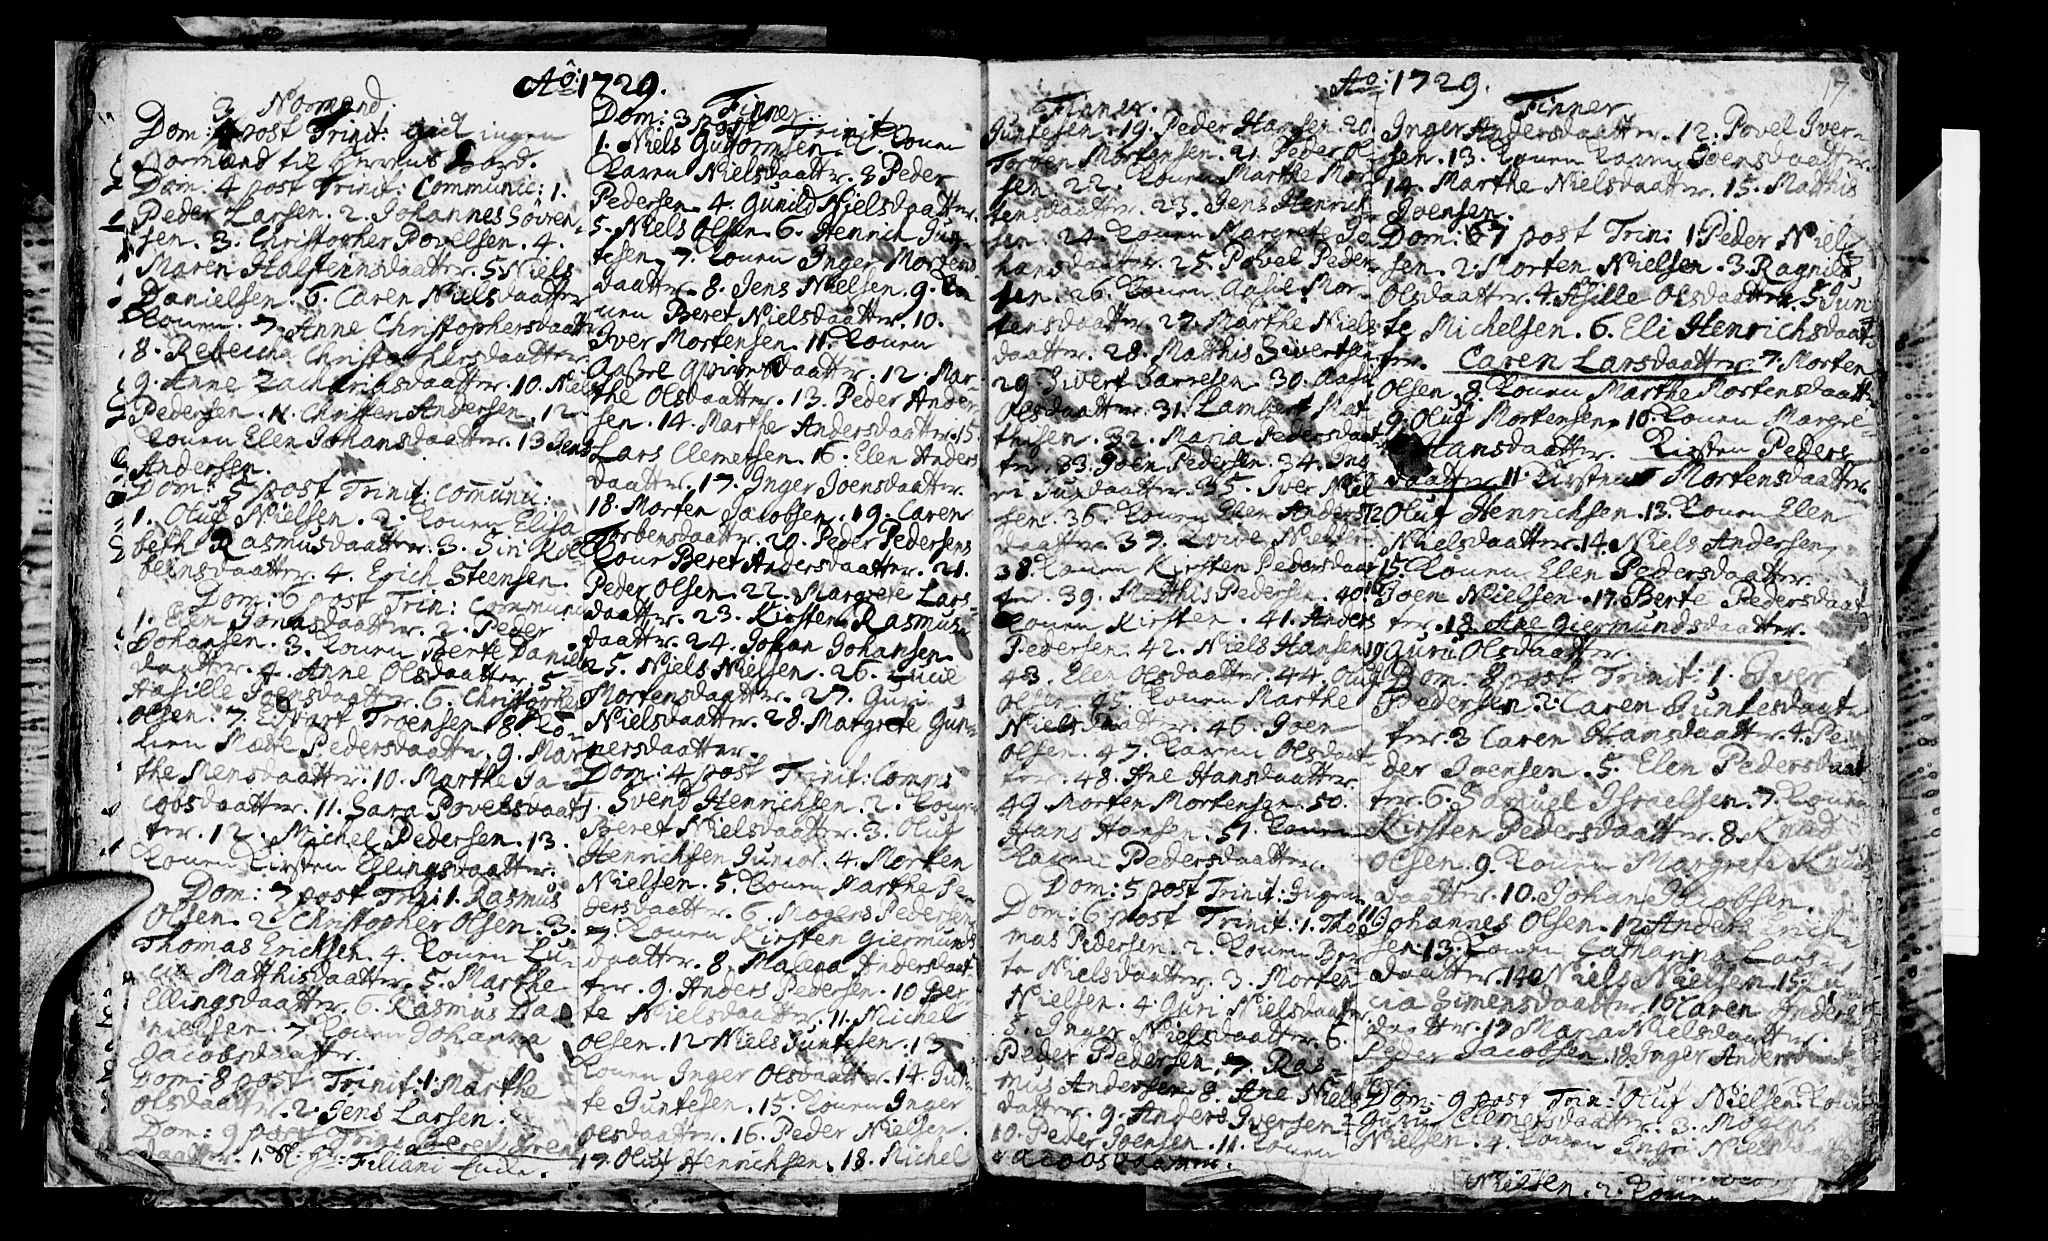 Aō: 1729.
Normænd.
Dom: 3 post Trinit: gick ingen
Normænd til Herrens Bord.
Dom. 4 post Trinit: Communic: 1.
Peder Larsen. 2. Johannes Søren-
sen. 3. Christopher Povelsen. 4.
Maren Halsteinsdaatter. 5. Niels
Danielsen. 6. Caren Nielsdaatter
Konen. 7. Anne Christophersdaatter
8. Rebeccha Christophersdaatter
9. Anne Zachariasdaatter. 10. Niels
Pedersen. 11. Christen Andersen. 12.
Konen Elen Johansdaatter. 13 Jens
Andersen.
Dom: 5 post Trinit: Communic:
1. Oluf Nielsen. 2. Konen Elisa
beth Rasmusdaatter. 3. Siri Kol-
beinsdaatter. 4. Erich Steensen.
Dom: 6 post Trin: Communic
1. Elen Jonasdaatter. 2. Peder
Johansen. 3. Konen Berte Daniels
daatter. 4. Anne Olsdaatter. 5.
Joensdaatter. 6. Christopher
Olsen. 7. Troensen. 8. Ko-
nen Mætte Pedersdaatter. 9. Mar
the Mensdaatter. 10. Marthe Ja-
cobsdaatter. 11. Sara Povelsdaat
ter. 12. Michel Pedersen. 13.
Konen Kirsten Ellingsdaatter.
Dom: 7 post Tri: 1. Rasmus
Olsen. 2 Christopher Olsen. 3.
Thomas Erichsen. 4. Konen Lu-
cia Matthisdaatter. 5. Marthe
Ellingsdaatter. 6. Rasmus Da
nielsen. 7. Konen Johanna
Jacobsdaatter.
Dom: 8 post Trinit: 1: Marthe
Olsdaatter. 2. Jens Larsen.
Dom: 9 post Trin:
daatter. 1.
Finner.
Dom: 3 post Trinit:
1. Niels Guttormsen. 2. Konen
Karen Nielsdaatter. 3 Peder
Pedersen. 4. Gunild Nielsdaatter.
5. Niels Olsen. 6. Henrich Gun-
tesen. 7. Konen Inger Mortens
daatter. 8. Jens Nielsen. 9. Ko
nen Beret Nielsdaatter. 10.
Iver Mortensen. 11. Konen
daatter. 12. Mar-
the Olsdaatter. 13. Peder Ander
sen. 14. Marthe Andersdaatter. 15
Lars Clemetsen. 16. Elen Anders
daatter. 17. Inger Joensdaatter.
18. Morten Jacobsen. 19. Caren
Torbensdaatter. 20. Peder Pedersens
Kone Beret Andersdaatter. 21.
Peder Olsen. 22. Margrete Lars-
daatter. 23. Kirsten Rasmus
daatter. 24. Johan Johansen
25. Niels Nielsen. 26. Lucie
Mortensdaatter. 27. Guri
Nielsdaatter. 28. Margrete Gun-
nersdaatter.
Dom: 4 post Trinit: Commu
1. Svend Henrichsen. 2. Konen
Beret Nielsdaatter. 3. Oluf
Henrichsen Junior. 4. Morten
Nielsen. 5. Konen Marthe Pe
dersdaatter. 6. Mogens Pedersen
7. Konen Kirsten Giermunds
daatter. 8. Malena Andersdaat
ter. 9. Anders Pedersen. 10 Ber
te Nielsdaatter. 11. Michel
Olsen. 12 Niels Guntesen. 13
Konen Inger Olsdaatter. 14. Gun
te Guntesen. 15. Konen Inger
Olsdaatter. 16. Peder Nielsen.
17. Oluf Henrichsen. 18. Michel
Aō: 1729.
17
Finner.
Guntesen. 19. Peder Hansen. 20.
Torben Mortensen. 21. Peder Ol
sen. 22. Konen Marthe Mor
tensdaatter. 23. Jens Henrich
sen. 24. Konen Margrete Jo
hansdaatter. 25. Povel Peder-
sen. 26. Konen Aasil Mor-
tensdaatter. 27. Marthe Niels
daatter. 28. Matthis Sivertsen
29. Sivert Larsen. 30. Aasil
Olsdaatter. 31. Lambert Mat
thisen. 32. Maria Pedersdaat
ter. 33. Joen Pedersen. 34. Ing
ri daatter. 35. Iver Niel
sen. 36. Konen Elen Anders
daatter. 37.
38. Konen Kirsten Pedersdaat
ter. 39. Matthis Pedersen. 40.
Konen Kirsten. 41. Anders
Pedersen. 42. Niels Hansen
43. Elen Olsdaatter. 44. Oluf
Olsen. 45. Konen Marthe
Nielsdaatter. 46. Joen
Olsen. 47. Karen Olsdaat
ter. 48. Ane Hansdaatter
49. Morten Mortensen. 50.
Hans Hansen. 51. Konen
Karen Pedersdaatter.
Dom: 5 post Trinit: Ingen
Dom: 6 post Trinit: 1. Tho-
mas Pedersen. 2. Konen Ber
te Nielsdaatter. 3. Morten
Nielsen. 4. Guri Nielsdaatter
5. Inger Nielsdaatter. 6.
Peder Pedersen. 7. Ras-
mus Andersen. 8. Ane Niels
datter. 9. Anders Iversen
10. Peder Joensen. 11. Konen
Jacobsdaatter.
Finner
Inger Andersdaatter. 12: Povel Iver-
sen. 13. Konen Karen Joensdaatter.
14. Marthe Nielsdaatter. 15. Matthis
Joensen.
Dom: 7 post Trin: 1 Peder Niel
sen. 2. Morten Nielsen. 3. Ragnild
Olsdaatter. 4. Sille Olsdaatter. 5 Gun
te Michelsen. 6. Eli Henrichsdaat
ter. Caren Larsdaatter. 7. Morten
Olsen. 8. Konen Marthe Mortensdaatter
9. Oluf Mortensen. 10. Konen Margre-
te Hansdaatter. Kirsten Peders
daatter 11. Kirsten Mortensdaatter.
12 Oluf Henrichsen. 13. Konen Elen
Nielsdaatter. 14. Niels Andersen.
15. Konen Elen Pedersdaatter.
16 Joen Nielsen. 17. Berte Pedersdaat
ter. 18. Ane Giermundsdaatter.
19 Guru Olsdaatter.
Dom: 8 post Trinit: 1. Iver
Pedersen. 2. Caren Guntesdaat
ter. 3 Caren Hansdaatter. 4. Pe
der Joensen. 5. Elen Pedersdaat
ter. 6. Samuel Israelsen. 7. Konen
Kirsten Pedersdaatter. 8. Knud
Olsen. 9. Konen Margrete Knuds
daatter. 10. Johan Jacobsen.
11 Johannes Olsen. 12 Anders Erich
sen. 13. Konen Catharina Lars-
daatter. 14. Niels Nielsen. 15. Lu
cia Simensdaatter. 16 Caren Anders
daatter. 17 Maria Nielsdaatter.
Peder Jacobsen. 18. Inger Andersdaat
Dom: 9 post Trin: Oluf Nielsen. Konen
Guru Clemetsdaatter. 3. Mogens
Nielsen. 4. Konen Ingri Nielsdaatter
Nielsen. 2. Konen